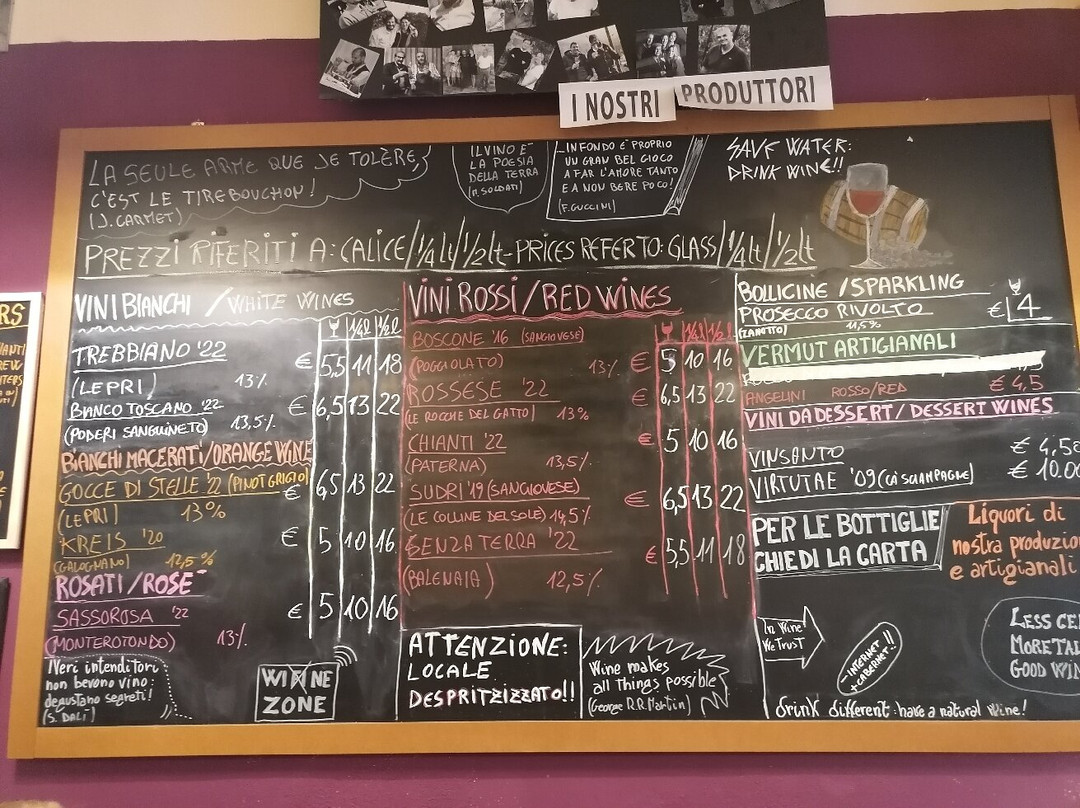 I NOSTRI PRODUTTORI
LA SEULE ARME QUE JE TOLÈRE,
C'EST LE TIREBOUCHON!
(J. CARMET)
IL VINO È
LA POESIA
DELLA TERRA
(M. SOLDATI)
INFONDO E' PROPRIO
UN GRAN BEL GIOCO
A FAR L'AMORE TANTO
E A NON BERE POCO!
(F. GUCCINI)
SAVE WATER:
DRINK WINE!!
PREZZI RIFERITI A: CALICE/¼lt/½lt-PRICES REFER TO: GLASS/¼lt/½lt
VINI BIANCHI / WHITE WINES
¼l ½l
TREBBIANO '22 € 5,5 11 18
(LE PRI) 13%
BIANCO TOSCANO '22 € 6,5 13 22
(PODERI SANGUINETO) 13,5%
BIANCHI MACERATI/ORANGE WINE
GOCCE DI STELLE '22 (PINOT GRIGIO) € 6,5 13 22
(LE PRI) 13%
KREIS '20 € 5 10 16
(GALOGNANO) 12,5%
ROSATI/ROSE'
SASSOROSA '22 € 5 10 16
(MONTEROTONDO) 13%
Neri intenditori
non bevono vino:
degustano segreti!
(S. DALÌ)
WINE
ZONE
VINI ROSSI/RED WINES
¼l ½l
BOSCONE '16 (SANGIOVESE)
(POGGIOLATO) 13% € 5 10 16
ROSSESE '22 € 6,5 13 22
(LE ROCCHE DEL GATTO) 13%
CHIANTI '22 € 5 10 16
(PATERNA) 13,5%
SUDRI '19 (SANGIOVESE) € 6,5 13 22
(LE COLLINE DEL SOLE) 14,5%
SENZA TERRA '22 € 5,5 11 18
(BALENAIA) 12,5%
ATTENZIONE:
LOCALE
DESPRITZIZZATO!!
Wine makes
all Things possible
(George R.R. Martin)
BOLLICINE / SPARKLING
PROSECCO RIVOLTO € 4
(ZANOTTO) 11,5%
VERMUT ARTIGIANALI
ANGELINI ROSSO/RED € 4,5
VINI DA DESSERT/DESSERT WINES
VINSANTO € 4,50
VIRTUTAE '09 (CA' SCIAMPAGNE) € 10.00
PER LE BOTTIGLIE
CHIEDI LA CARTA
Liquori di
nostra produzio
e artigianali
In Wine
We Trust
-INTERNET
+CABERNET!!
LESS CE
MORE TAL
GOOD WIN
drink different: have a natural wine!